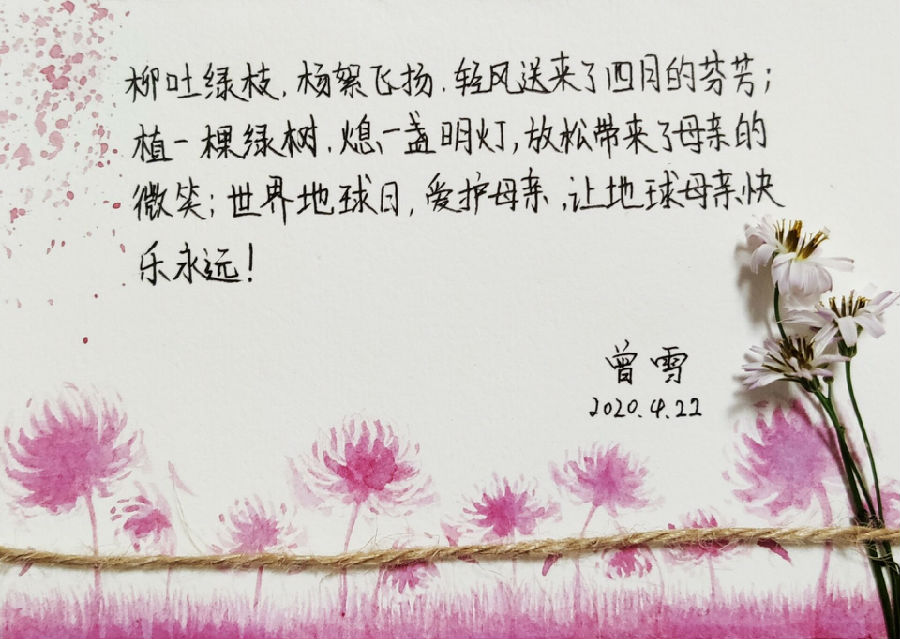 柳吐绿枝,杨絮飞扬.轻风送来了四月的芬芳;
植一棵绿树.熄一盏明灯,放松带来了母亲的
微笑;世界地球日,爱护母亲,让地球母亲快
乐永远!
曾雪
2020.4.22